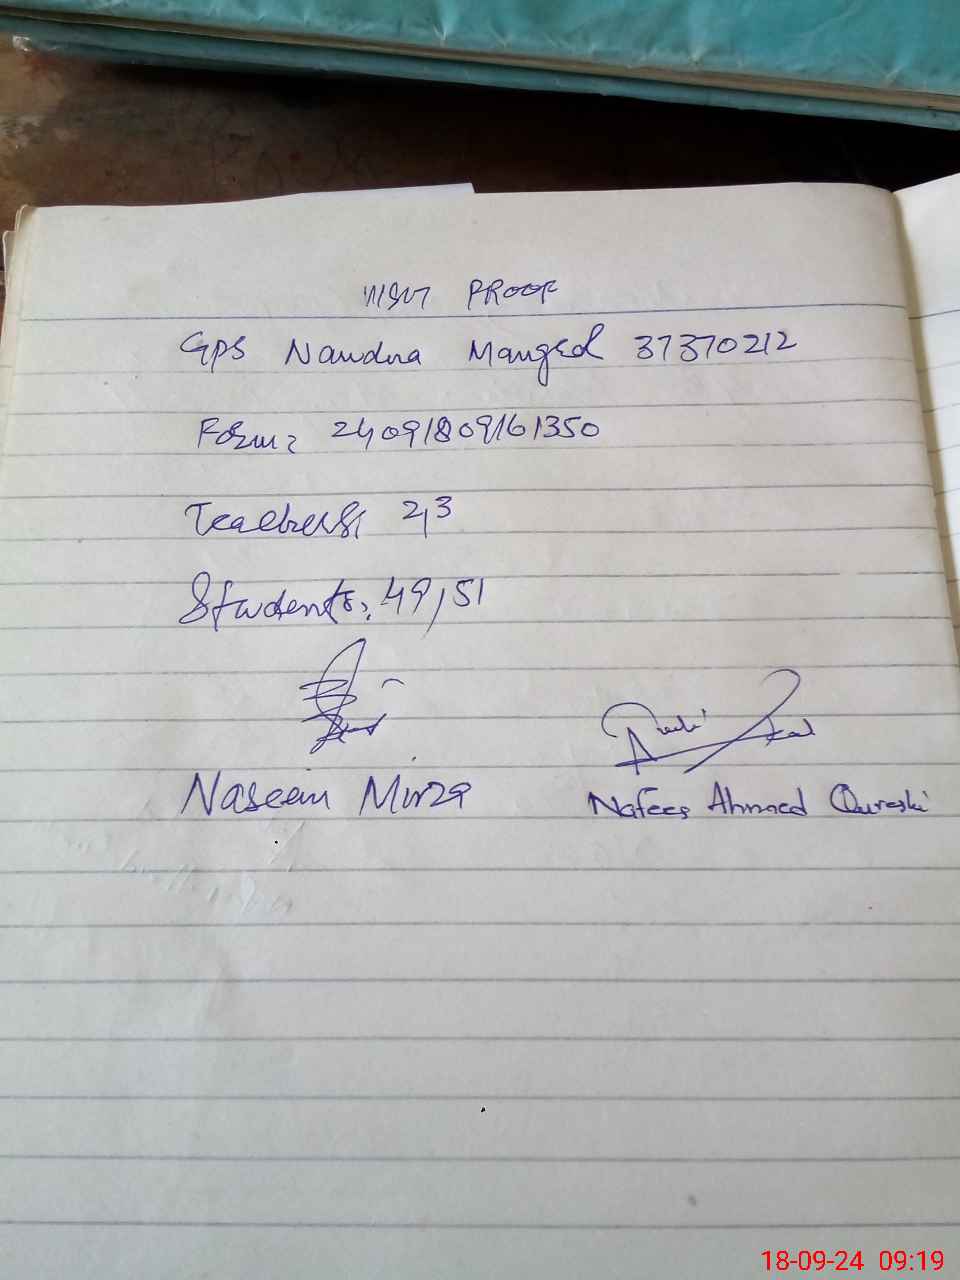 VISIT PROOF
GPS Nandna Mangral 37370212
Form: 24091809161350
Teachers: 2,3
Students: 49,51
Naseem Mirza
Nafees Ahmed Qureshi
18-09-24 09:19